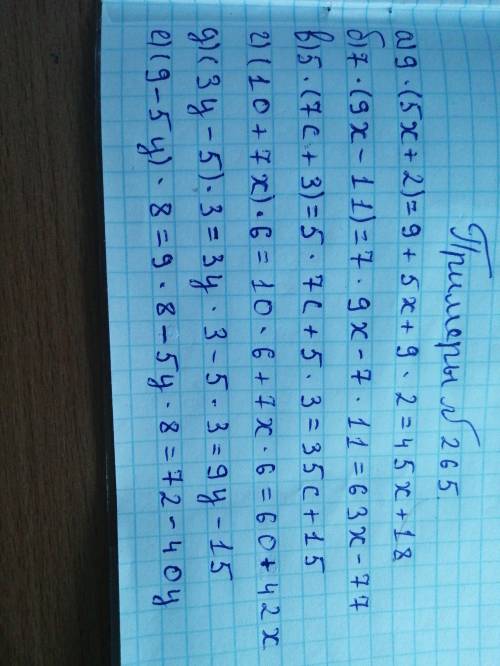 Примеры №265.
а) 9·(5x+2)=9+5x+9·2=45x+18
б) 7·(9x-11)=7·9x-7·11=63x-77
в) 5·(7c+3)=5·7c+5·3=35c+15
г) (10+7x)·6=10·6+7x·6=60+42x
д) (3y-5)·3=3y·3-5·3=9y-15
е) (9-5y)·8=9·8-5y·8=72-40y